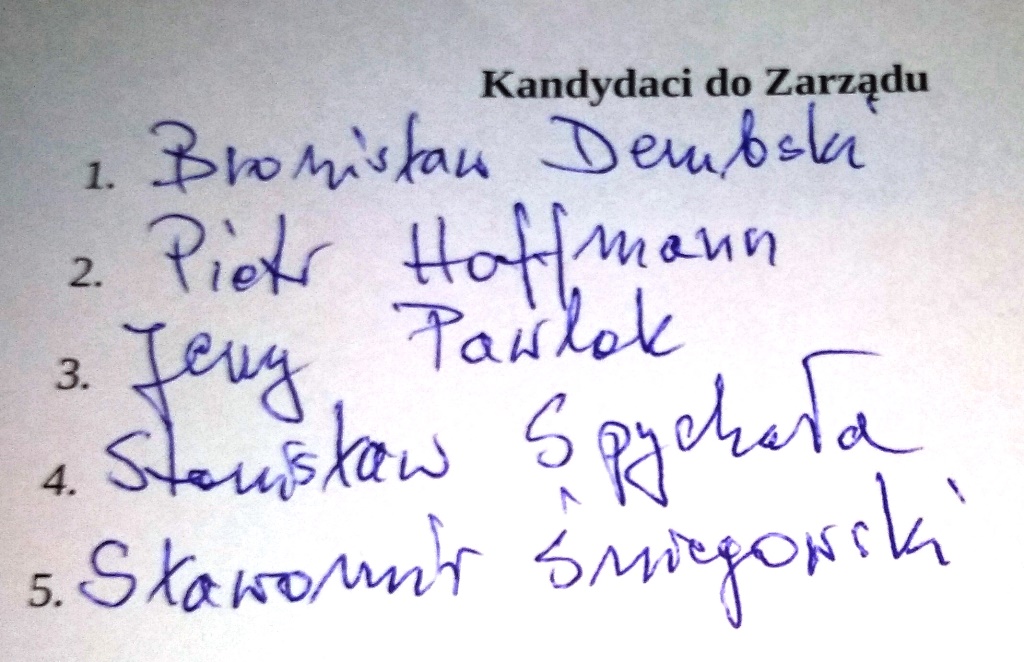 Kandydaci do Zarządu
1. Bronisław Dembski
2. Piotr Hoffmann
3. Jerzy Pawlak
4. Stanisław Spychała
5. Sławomir Śniegowski